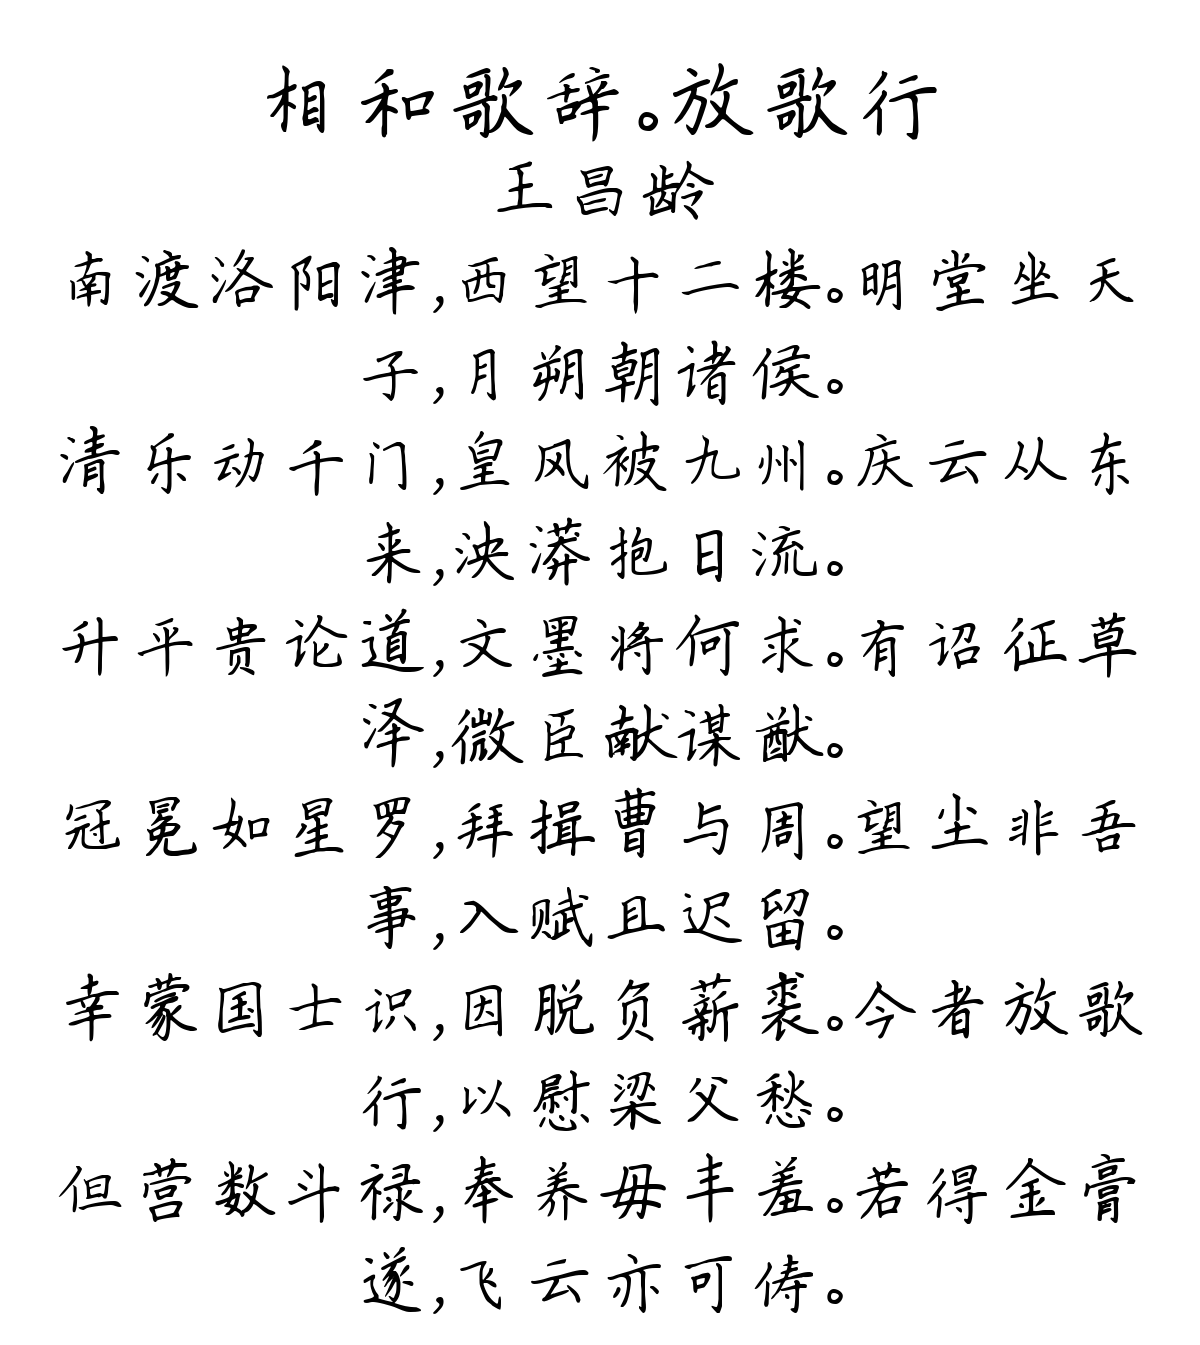 相和歌辞。放歌行
王昌龄
南渡洛阳津,西望十二楼。明堂坐天
子,月朔朝诸侯。
清乐动千门,皇风被九州。庆云从东
来,泱漭抱日流。
升平贵论道,文墨将何求。有诏征草
泽,微臣献谋猷。
冠冕如星罗,拜揖曹与周。望尘非吾
事,入赋且迟留。
幸蒙国士识,因脱负薪裘。今者放歌
行,以慰梁父愁。
但营数斗禄,奉养毋丰羞。若得金膏
遂,飞云亦可俦。